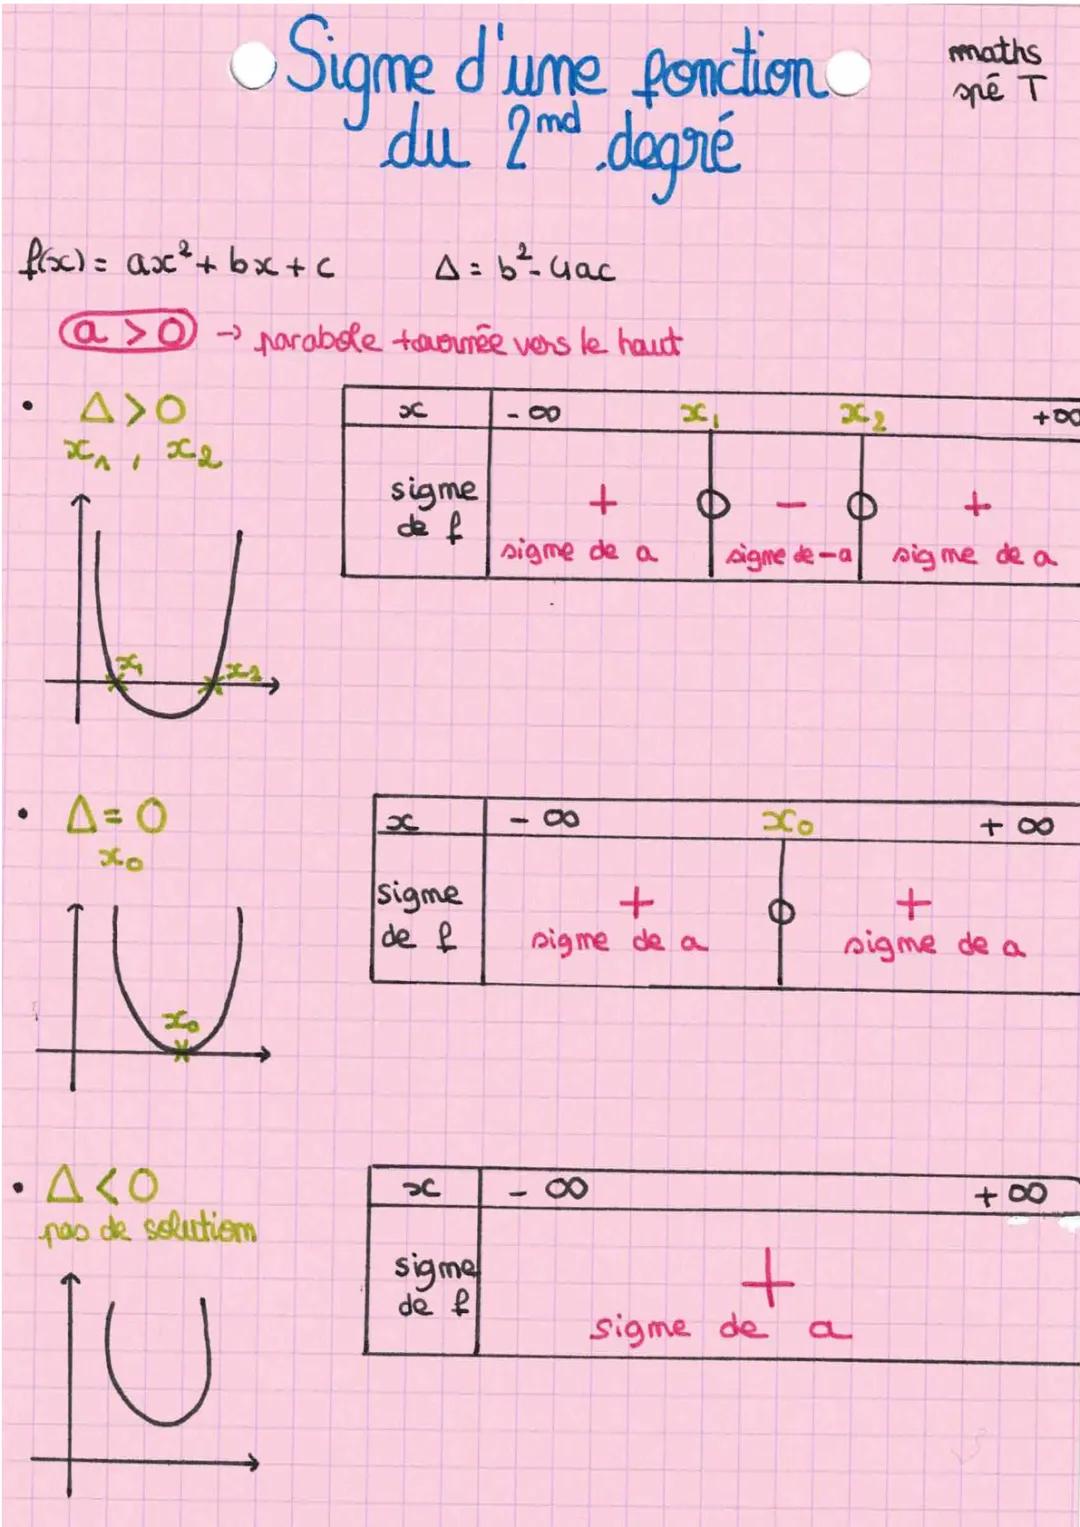 Signe d'une fonction
du 2nd degré
maths
spé T
f(x) = ax² + bx + c
Δ = b² - 4ac
a > 0 → parabole tournée vers le haut
• Δ > 0
x₁, x₂
x -∞ x₁ x₂ +∞
signe de f
+ - +
signe de a signe de -a signe de a
x₁ x₂
• Δ = 0
x₀
x -∞ x₀ +∞
signe de f
+ +
signe de a signe de a
x₀
• Δ < 0
pas de solution
x -∞ +∞
signe de f
+
signe de a